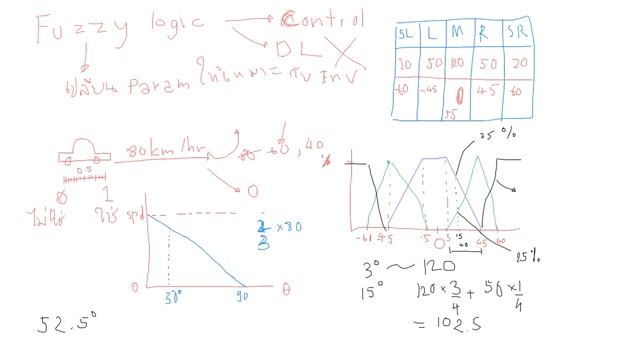 Fuzzy logic → Control
DL X
เปลี่ยน Param ให้เหมาะกับ Inv
SL L M R SR
50 50
-60 -45 0 45 60
±5
80 km/hr 60, 40
0.5
0 1 0
ไม่ใช่ ใช่
spd
0 30° 90 θ
2/3 × 80
25 %
-5 0 5 15 45 60
40
3° ~ 120
15° 120 × 3/4 + 50 × 1/4
= 102.5
52.5°